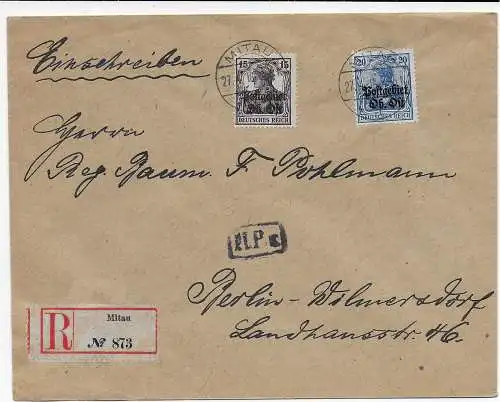 Einschreiben
MITAU
27.
15 15
Postgebiet
Ob. Ost
DEUTSCHES REICH
27.
20 20
Postgebiet
Ob. Ost
DEUTSCHES REICH
Herrn
Reg. Baum. F. Pohlmann
P
Berlin-Wilmersdorf
Landhausstr. 46.
R
Mitau
№ 873